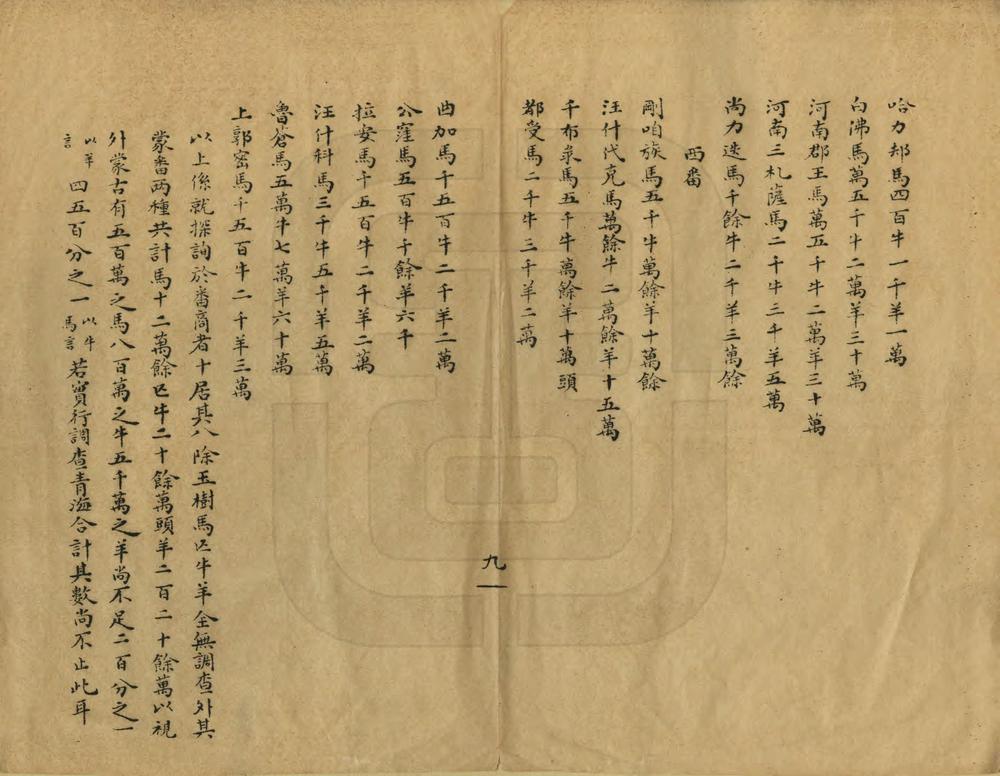 哈力邦馬四百牛一千羊一萬
白沸馬萬五千牛二萬羊三十萬
河南郡王馬萬五千牛二萬羊三十萬
河南三札薩馬二千牛三千羊五萬
尚力迭馬千餘牛二千羊三萬餘
西番
剛咱族馬五千牛萬餘羊十萬餘
汪什代克馬萬餘牛二萬餘羊十五萬
千布彔馬五千牛萬餘羊十萬頭
都受馬二千牛三千羊二萬
九
曲加馬千五百牛二千羊二萬
公窪馬五百牛千餘羊六千
拉安馬千五百牛二千羊二萬
汪什科馬三千牛五千羊五萬
魯蒼馬五萬牛七萬羊六十萬
上郭密馬千五百牛二千羊三萬
以上係就探詢於番商者十居其八除玉樹馬匹牛羊全無調查外其
蒙番两種共計馬十二萬餘匹牛二十餘萬頭羊二百二十餘萬以視
外蒙古有五百萬之馬八百萬之牛五千萬之羊尚不足二百分之一
以羊言四五百分之一以牛馬言若實行調查青海合計其數尚不止此耳